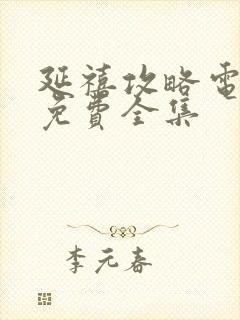 延禧攻略電
免費全集
李元春